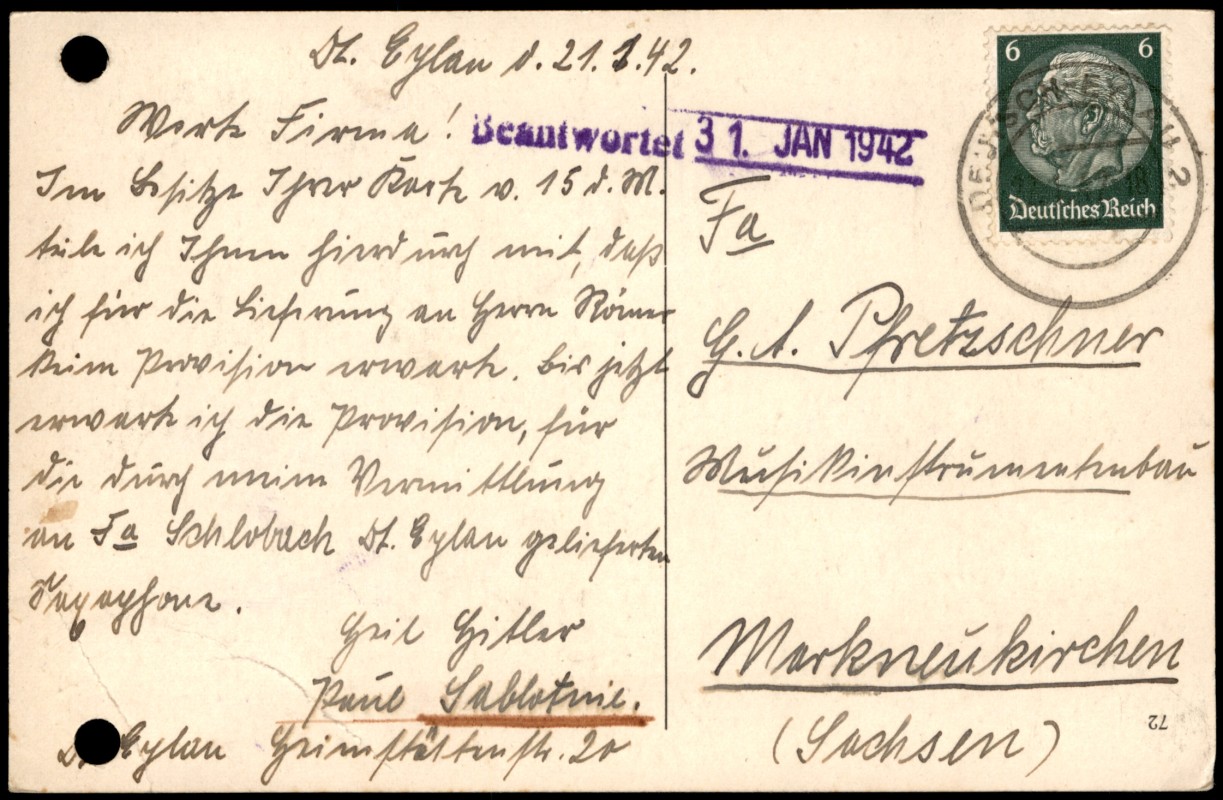 Dt. Eylau d. 21.1.42.
Werte Firma!
Im Besitze Ihrer Karte v. 15 d. M.
teile ich Ihnen hierdurch mit, daß
ich für die Lieferung an Herrn Römer
keine Provision erwarte. Bis jetzt
erwarte ich die Provision, für
die durch meine Vermittlung
an Fa Schlobach Dt. Eylau gelieferten
Saxophone.
Heil Hitler
Paul Sablotnie.
Dt. Eylau Heimstättenstr. 20
Beantwortet 31. JAN 1942
6 6
Deutsches Reich
DEUTSCH EYLAU 2
18
Fa
G. A. Pfretzschner
Musikinstrumentenbau
Markneukirchen
(Sachsen)
72